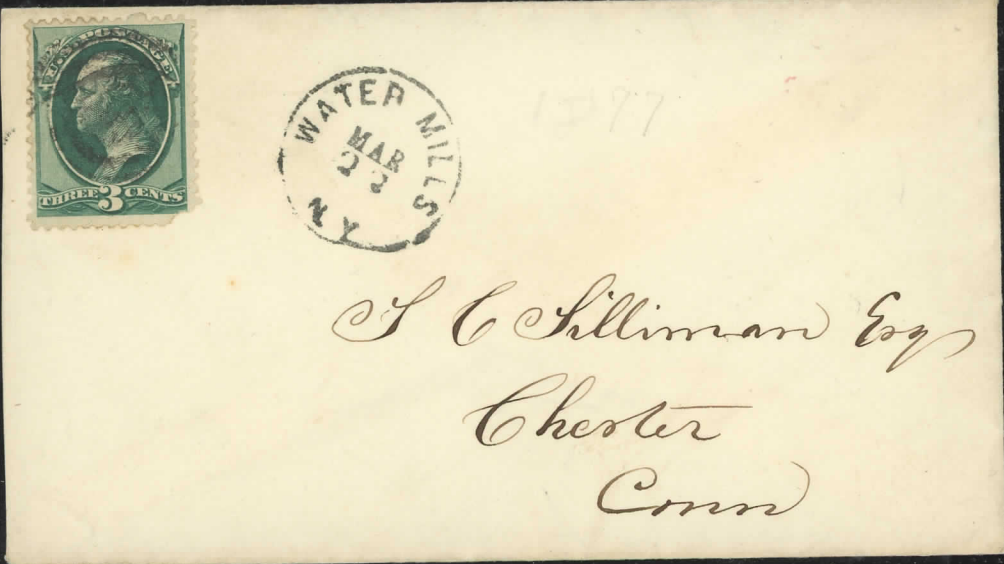 U.S. POSTAGE
THREE 3 CENTS
WATER MILLS
MAR
22
N.Y.
1877
S C Silliman Esq
Chester
Conn